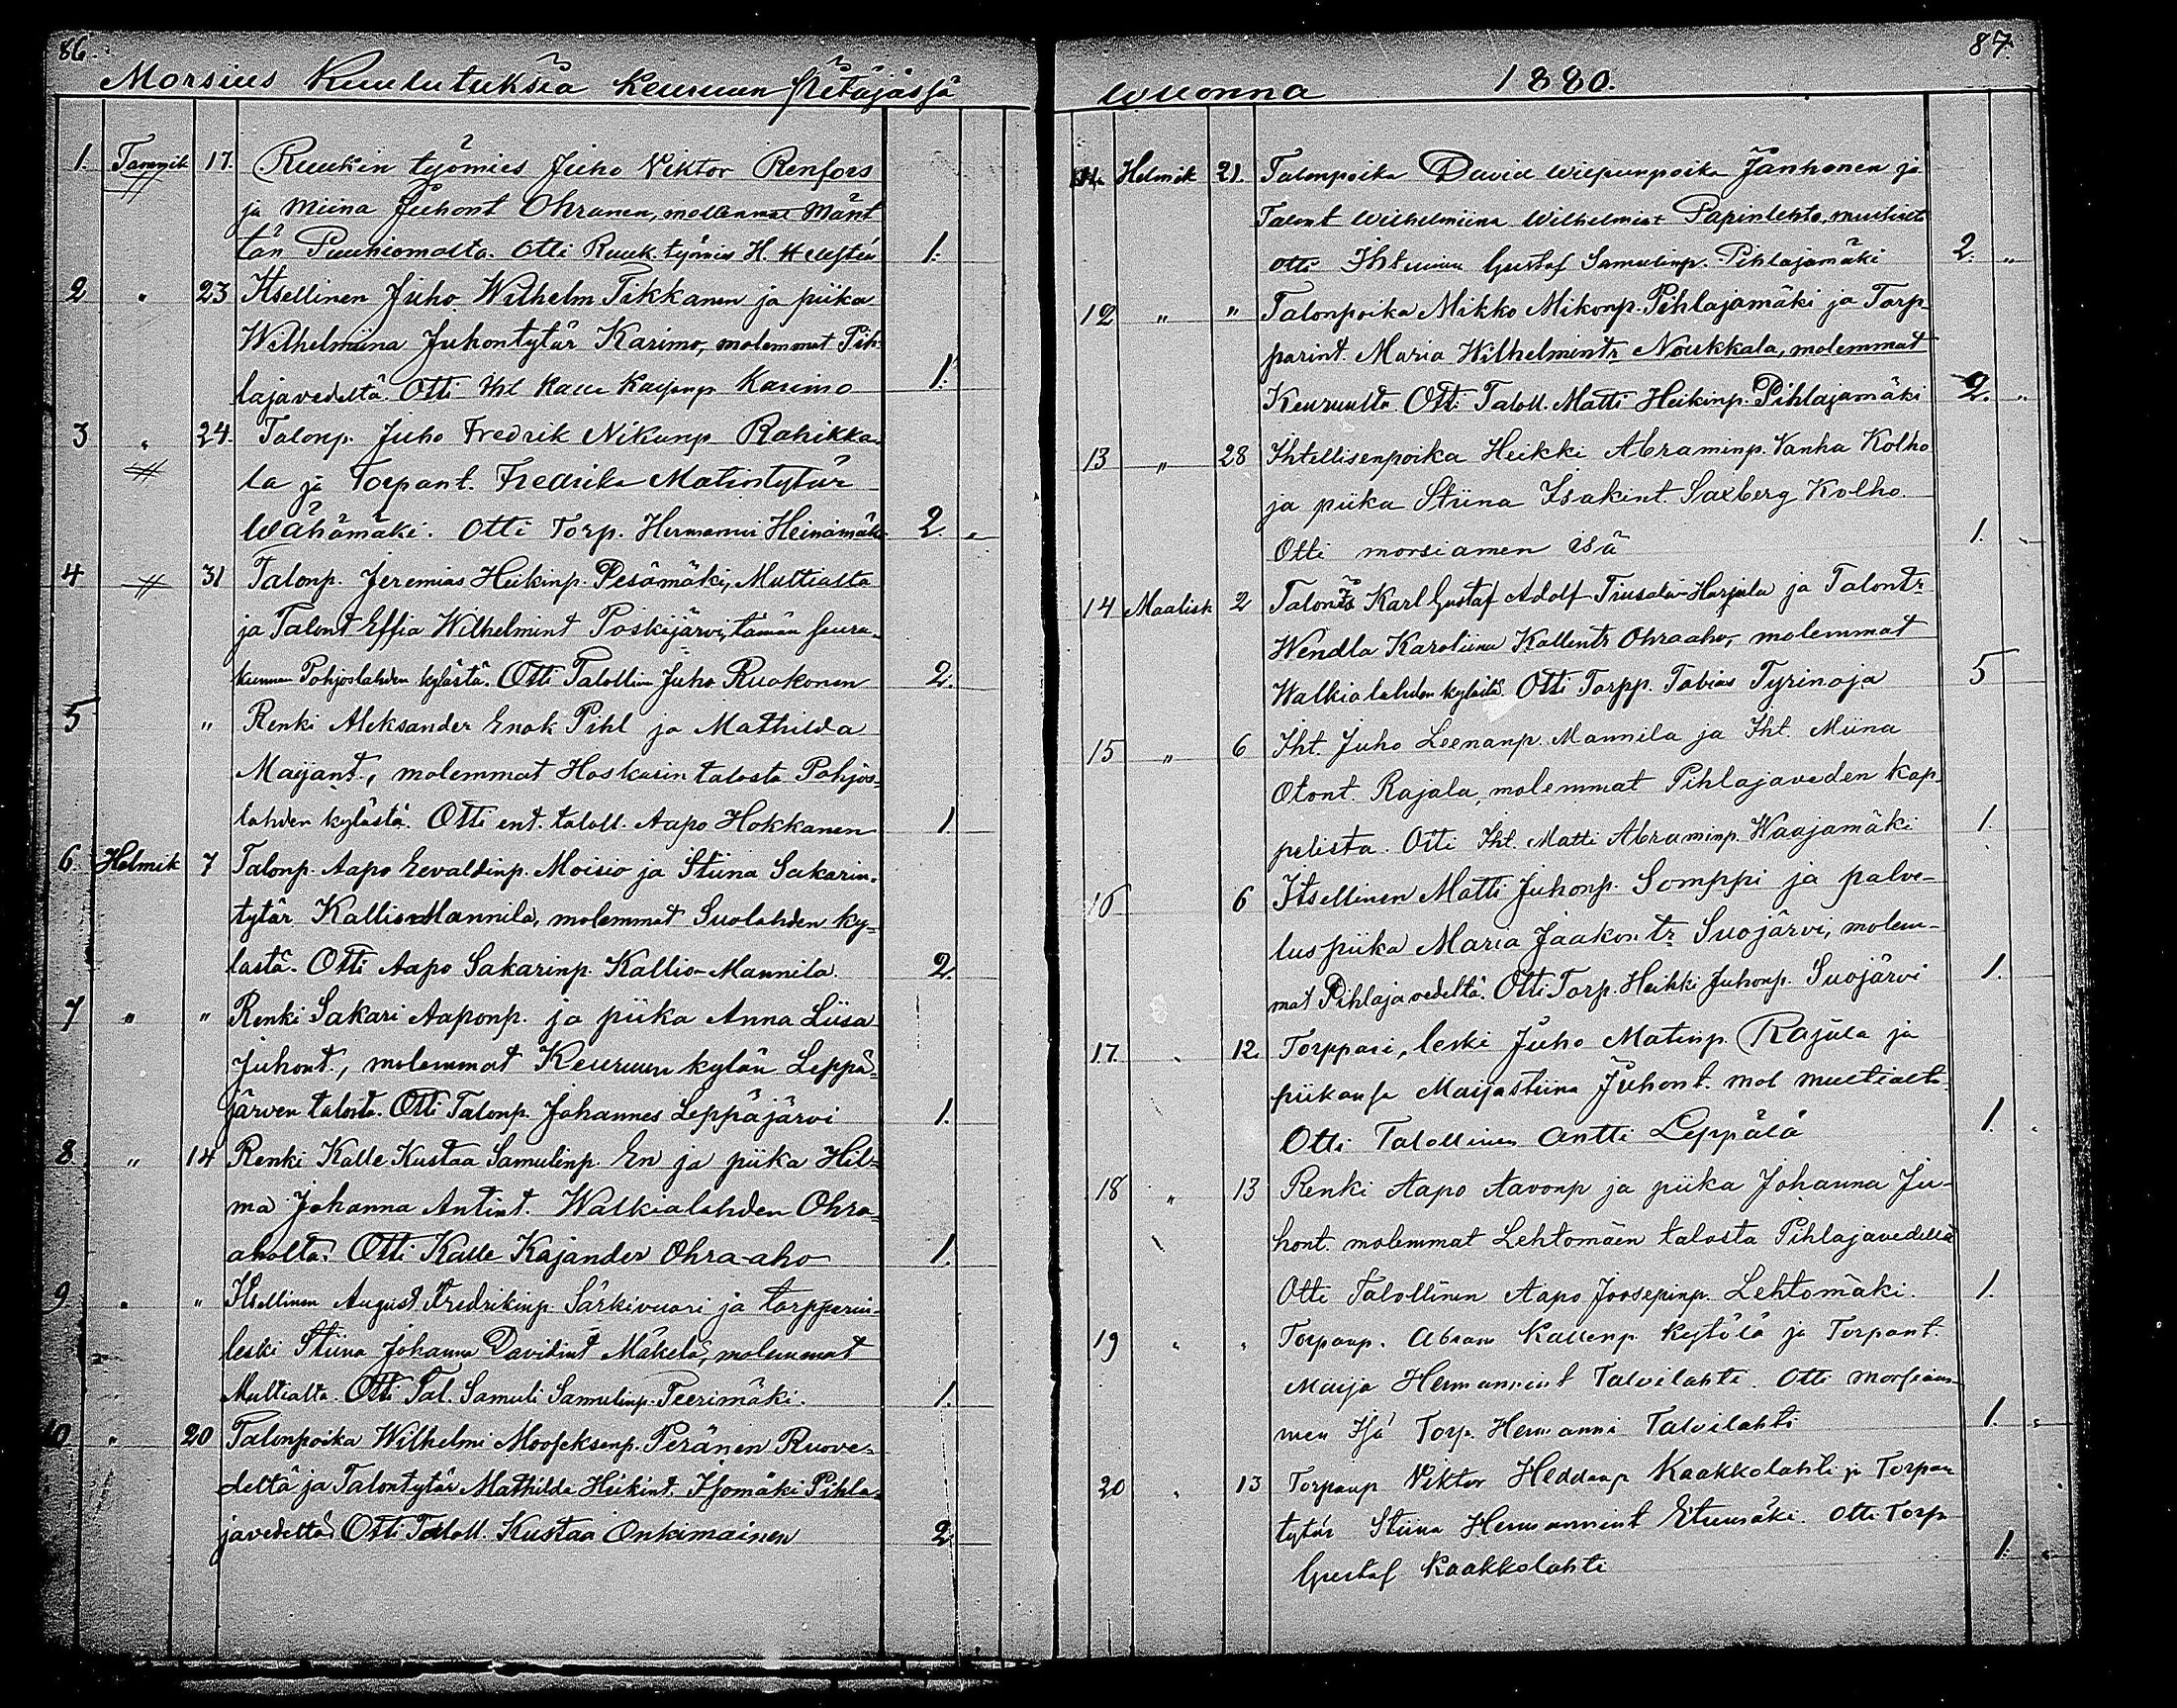 86.
Morsius Kuulutuksia Keuruun Pitäjässä
1. Tammik 17. Ruukin työmies Juho Viktor Renfors
ja Miina Juhont Ohranen, molemmat Mänt
tän Puuhiomolta. Otti Ruuk. työmies H. 1.
2 " 23 Itsellinen Juho Wilhelm Tikkanen ja piika
Wilhelmiina Juhontytär Karimo, molemmat Pih-
lajavedeltä. Otti Kalle Karimo 1.
3 " 24. Talonp. Juho Fredrik Nikunp Rahikka-
la ja Torpant. Fredrika Matintytär
Wähämäki. Otti Torp. Hermanni Heinämäki 2. "
4 31 Talonp. Jeremias Heikinp. Pesämäki, Multialta
ja Talont Effia Wilhelmint Poskijärvi, tämän seura-
kunnan Pohjoslahden kylästä. Otti Talollin Juho Ruokonen 2.
5 " Renki Aleksander Enok Pihl ja Mathilda
Maijant., molemmat Hoskarin talosta Pohjos-
lahden kylästä. Otti ent. taloll. Aapo Hokkanen 1
6. Helmik 7 Talonp. Aapo Eevaldinp. Moisio ja Stiina Sakarin-
tytär Kallio-Mannila, molemmat Suolahden ky-
lästä. Otti Aapo Sakarinp. Kallio-Mannila 2.
7 " " Renki Sakari Aaponp. ja piika Anna Liisa
Juhont., molemmat Keuruun kylän Leppä-
järven talosta. Otti Talonp. Johannes Leppäjärvi 1.
8 " 14 Renki Kalle Kustaa Samulinp. En ja piika Hil-
ma Johanna Antint. Walkialahden Ohra-
aholta. Otti Kalle Kajander Ohra-aho 1.
9 " " Itsellinen August Fredrikinp. Särkivuori ja torpparin-
leski Stiina Johanna Davidint Mäkelä, molemmat
Multialta. Otti Tal. Samuli Samulinp. Teerimäki. 1.
10 " 20 Talonpoika Wilhelmi Mooseksenp. Peränen Ruove-
deltä ja Talontytär Mathilda Heikint. Isomäki Pihla-
javedeltä Otti Taloll. Kustaa Onkimainen 2
87.
wuonna 1880.
Helmik 21. Talonpoika David Wiipunpoika Jänhonen ja
Talont Wilhelmiina Wilhelmint Papinlehto,
Otti Gustaf Samulinp. Pihlajamäki 2. "
12 " " Talonpoika Mikko Mikonp. Pihlajamäki ja Torp-
parint. Maria Wilhelmintr Noukkala, molemmat
Keuruulta. Otti Taloll. Matti Heikinp. Pihlajamäki 2. "
13 " 28 Ihtellisenpoika Heikki Abraminp. Vanha Kolho
ja piika Stiina Isakint. Saxberg Kolho.
Otti morsiamen isä 1. "
14 Maalisk 2 Karl Gustaf Adolf Harjula ja Talontr
Wendla Karoliina Kallentr Ohraaho, molemmat
Walkialahden kylästä. Otti Torpp. Tobias Tyrinoja 5
15 " 6 Iht. Juho Leenanp. Mannila ja Iht. Miina
Otont. Rajala, molemmat Pihlajaveden kap-
pelista. Otti Iht. Matti Abraminp. Waajamäki 1.
16 6 Itsellinen Matti Juhonp. Somppi ja palve-
lus piika Maria Jaakontr Suojärvi, molem-
mat Pihlajavedeltä. Otti Torp. Heikki Juhonp. Suojärvi 1.
17 " 12. Torppari, leski Juho Matinp. Rajala ja
piikansa Maijastiina Juhont. mol Multialta.
Otti Talollinen Antti Leppälä 1. "
18 " 13 Renki Aapo Aavonp ja piika Johanna Ju-
hont. molemmat Lehtomäen talosta Pihlajavedeltä
Otti Talollinen Aapo Joosepinp. Lehtomäki. 1.
19 " " Torpanp. Abram Kallenp. Kytölä ja Torpant.
Maija Hermannint Talvilahti. Otti morsiam-
men Isä Torp. Hermanni Talvilahti 1. "
20 " 13 Torpanp Viktor Heddanp Kaakkolahti ja Torpan
tytär Stiina Hermannint Etumäki. Otti Torp
Gustaf Kaakkolahti 1. "